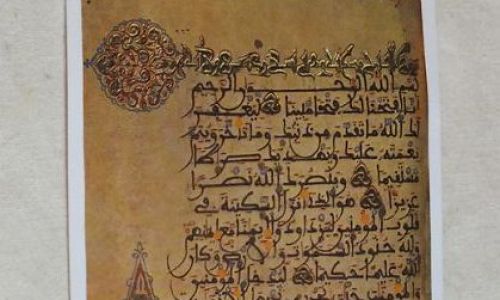 بسم الله الرحمن الرحيم
انا فتحنا لك فتحا مبينا ليغفر
لك الله ما تقدم من ذنبك وما تاخر ويتم
نعمته عليك ويهديك صراطا
مستقيما وينصرك الله نصرا
عزيزا هو الذي انزل السكينة في
قلوب المومنين ليزدادوا ايمنا مع ايمنهم
ولله جنود السموات والارض وكان
الله عليما حكيما ليدخل المومنين